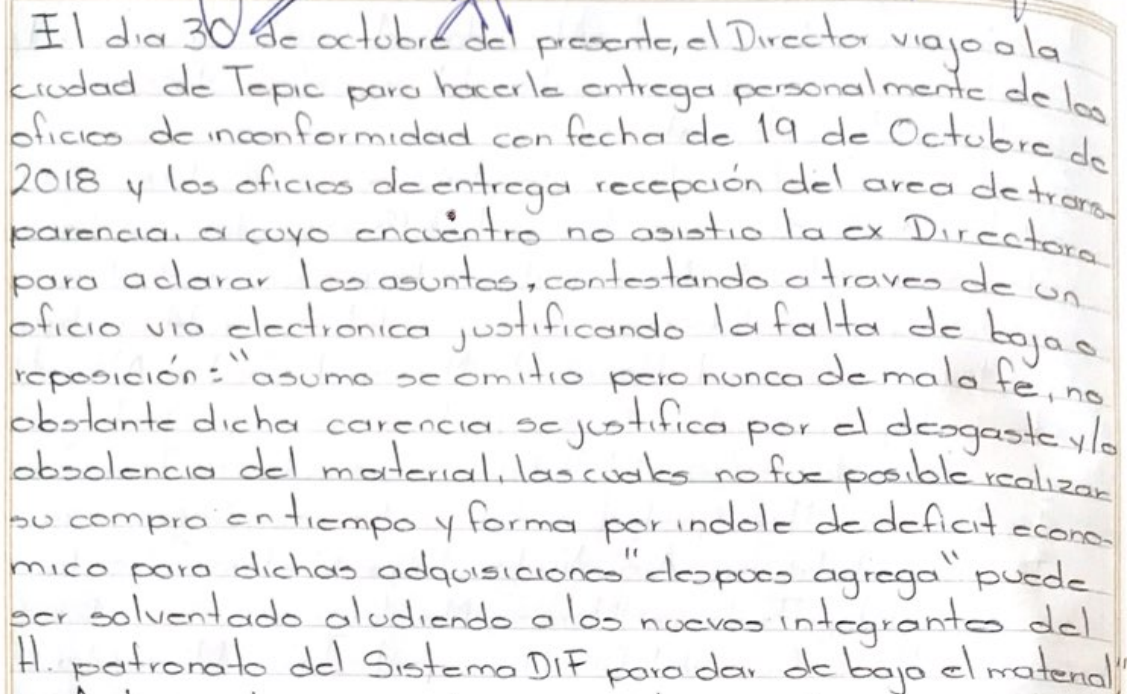 El dia 30 de octubre del presente, el Director viajo a la
ciudad de Tepic para hacerle entrega personalmente de los
oficios de inconformidad con fecha de 19 de Octubre de
2018 y los oficios de entrega recepción del area de trans-
parencia. a cuyo encuentro no asistio la ex Directora
para aclarar los asuntos, contestando a traves de un
oficio via electronica justificando la falta de baja o
reposición: "asumo se omitio pero nunca de mala fe, no
obstante dicha carencia se justifica por el desgaste y/o
obsolencia del material, las cuales no fue posible realizar
su compra en tiempo y forma por indole de deficit econo-
mico para dichas adquisiciones" despues agrega "puede
ser solventado aludiendo a los nuevos integrantes del
H. patronato del Sistema DIF para dar de baja el material"